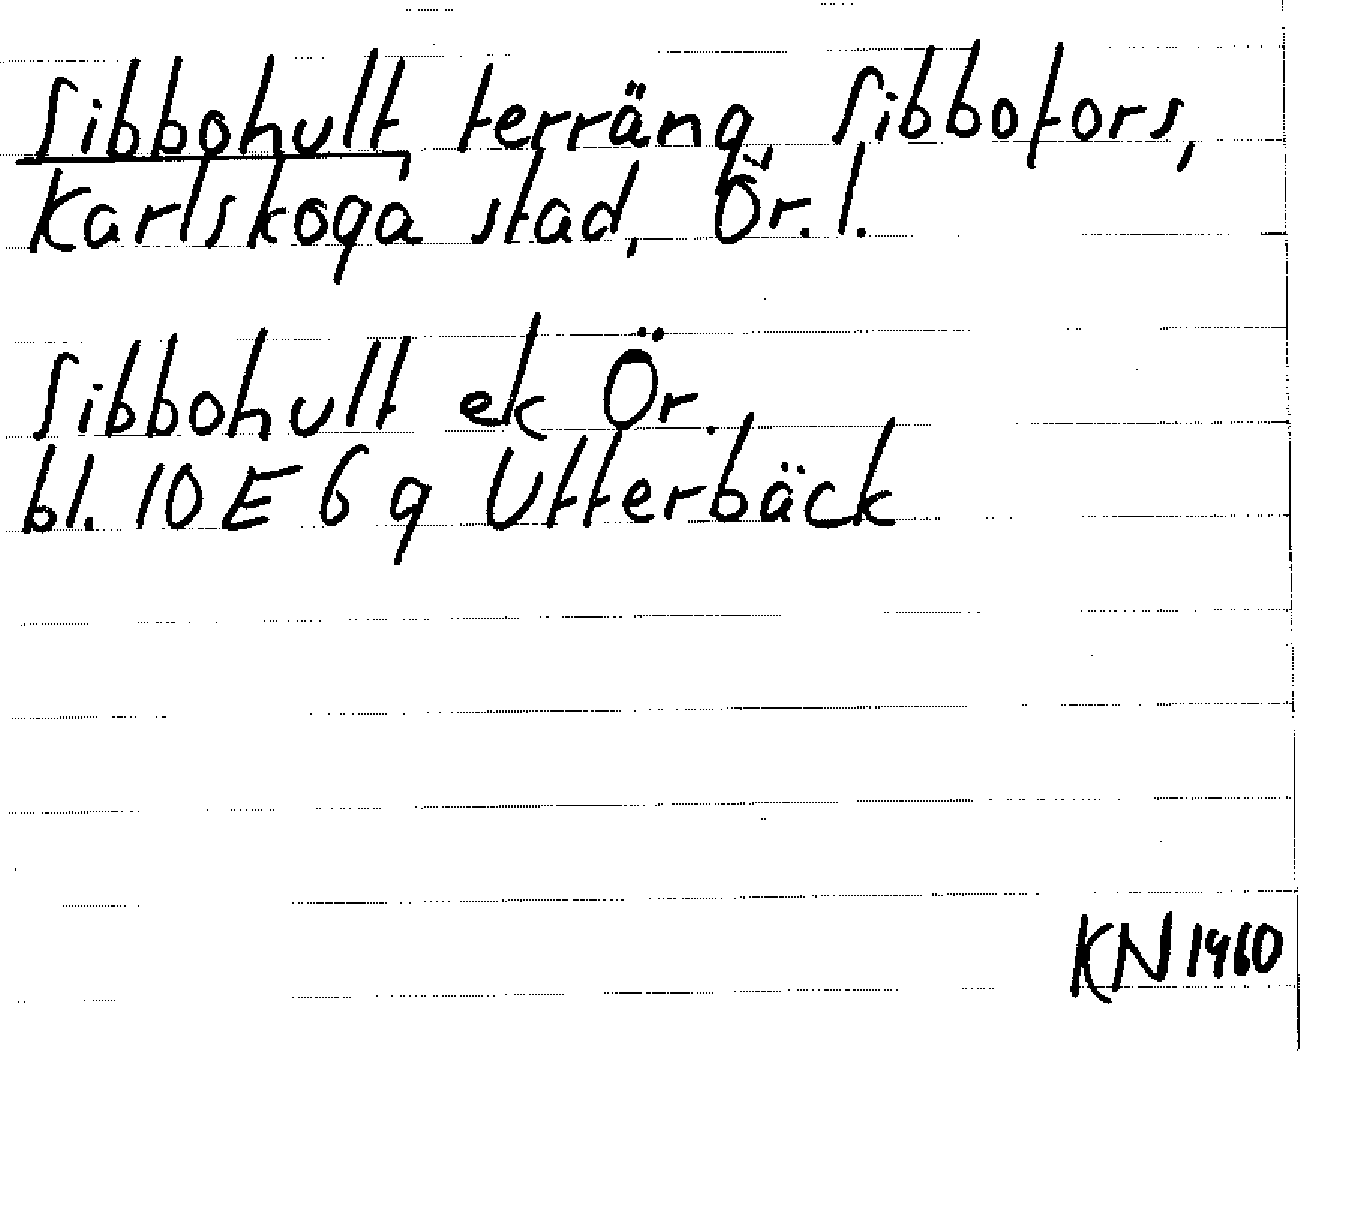 Sibbohult, terräng, Sibbofors,
Karlskoga stad, Ör. l.
Sibbohult ek Ör.
bl. 10 E 6 g Utterbäck
KN 1960